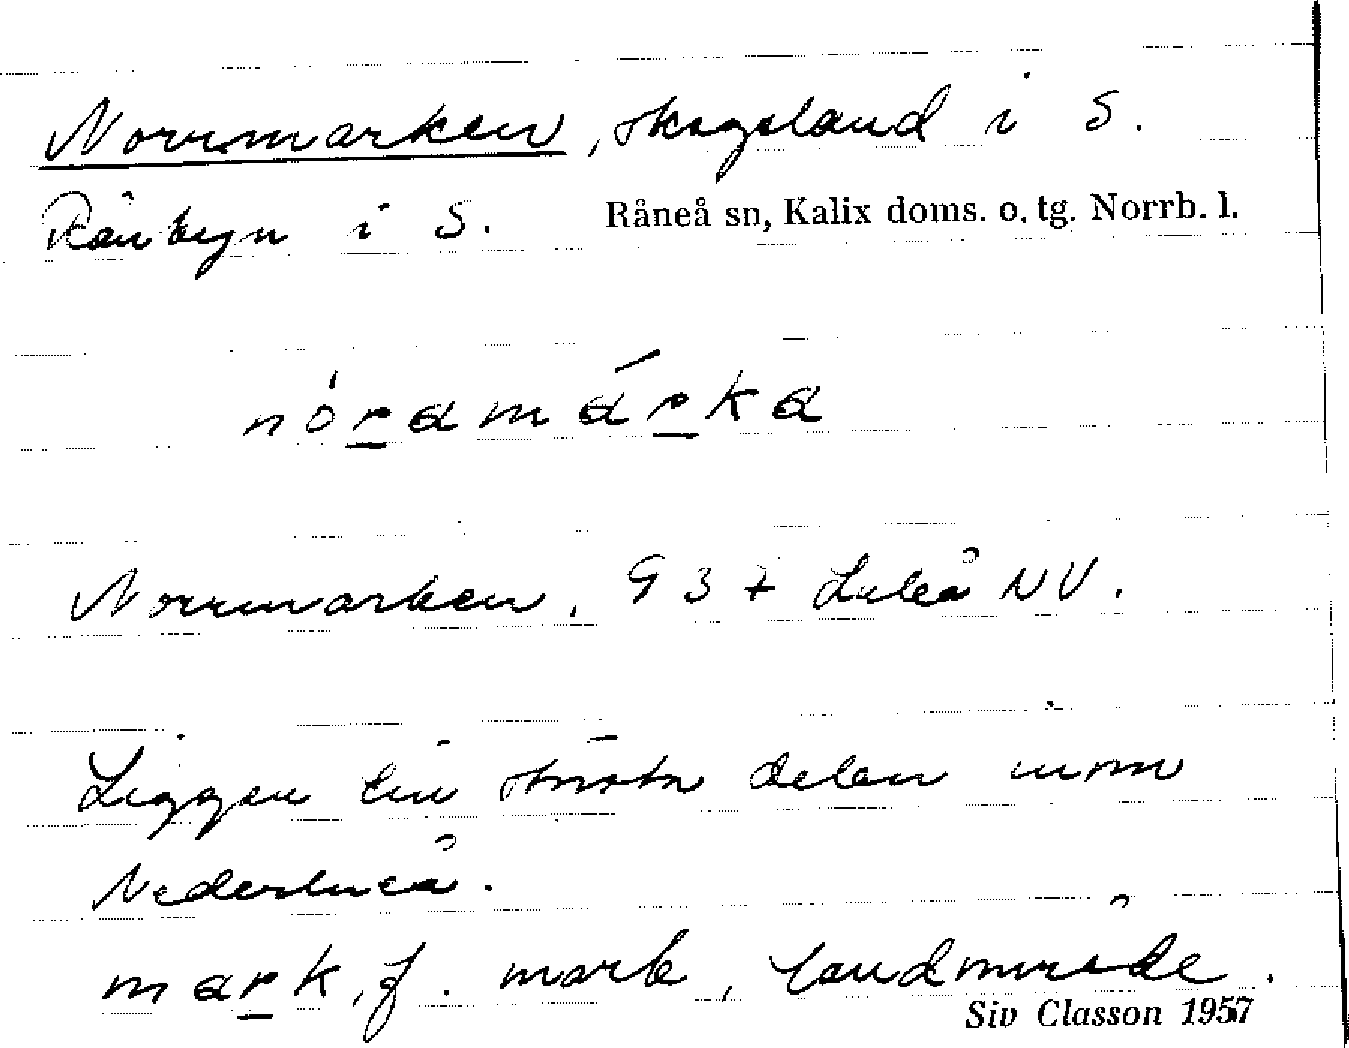 Norrmarken, skogsland i S.
Rånbyn i S. Råneå sn, Kalix doms. o. tg. Norrb. l.
nóramárka
Norrmarken, 937 Luleå NV.
Ligger till största delen inom
Nederluleå.
mark, f. mark, landområde.
Siv Classon 1957